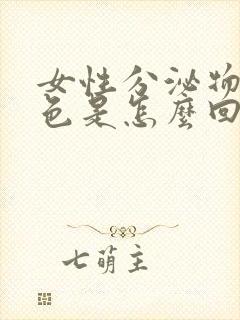 女性分泌物
色是怎麼回
七萌主